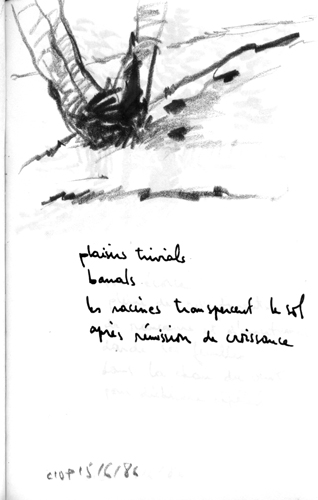 plaisirs trivials
banals
les racines transpercent le sol
après rémission de croissance
15/6/86